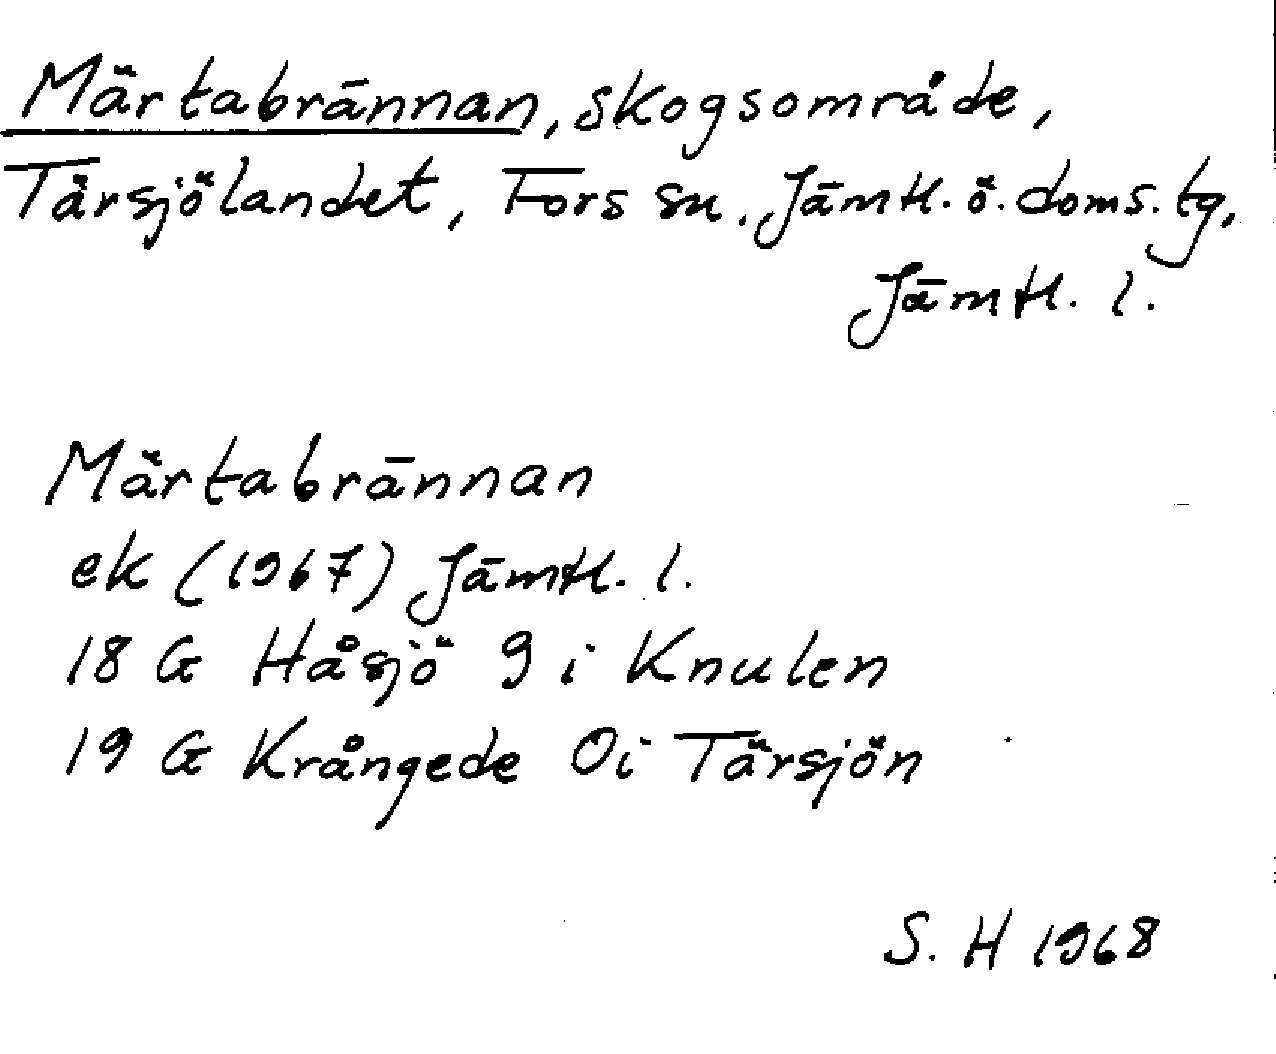 Märtabrännan, skogsområde,
Tärsjölandet, Fors sn. Jämtl. ö. doms. tg,
Jämtl. l.
Märtabrännan
ek (1967) Jämtl. l.
18 G Håsjö 9 i Knulen
19 G Krångede 0i Tärsjön
S. H 1968